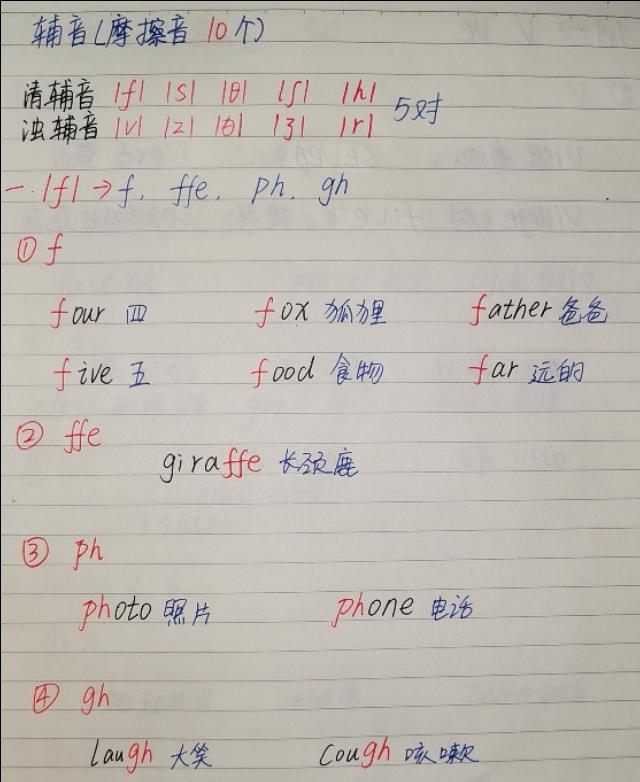 辅音(摩擦音 10个)
清辅音 |f| |s| |θ| |ʃ| |h| 5对
浊辅音 |v| |z| |ð| |ʒ| |r|
一. |f| → f, ffe, ph, gh
① f
four 四 fox 狐狸 father 爸爸
five 五 food 食物 far 远的
② ffe
giraffe 长颈鹿
③ ph
photo 照片 phone 电话
④ gh
laugh 大笑 cough 咳嗽